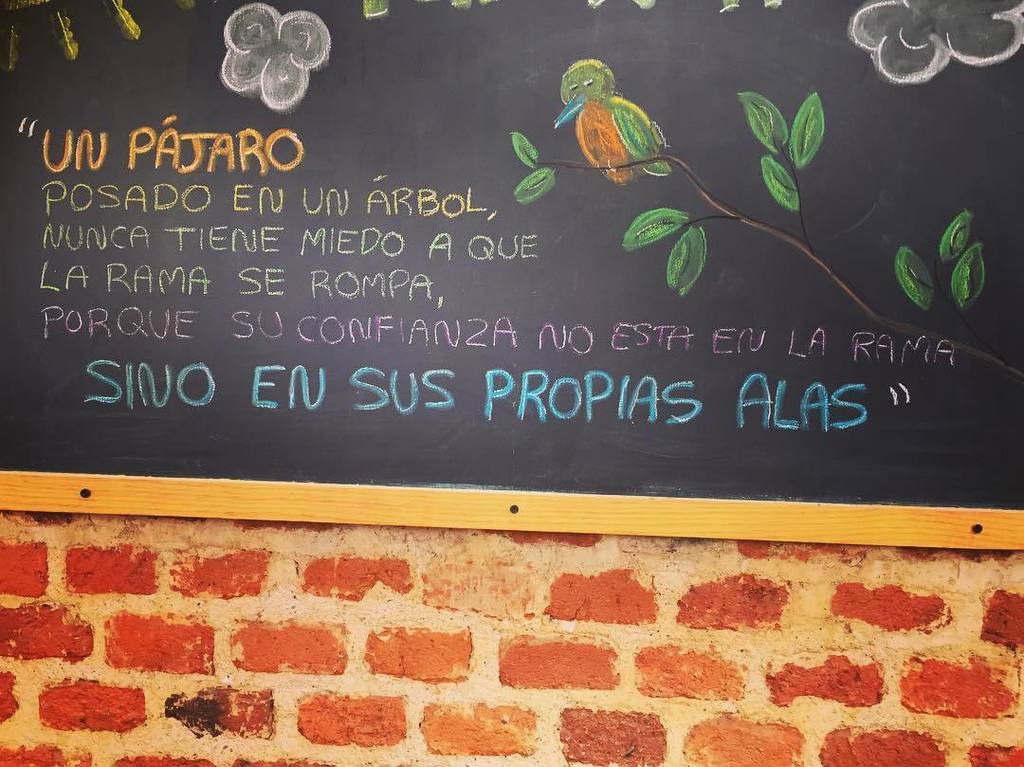 "UN PÁJARO
POSADO EN UN ÁRBOL,
NUNCA TIENE MIEDO A QUE
LA RAMA SE ROMPA,
PORQUE SU CONFIANZA NO ESTA EN LA RAMA
SINO EN SUS PROPIAS ALAS"